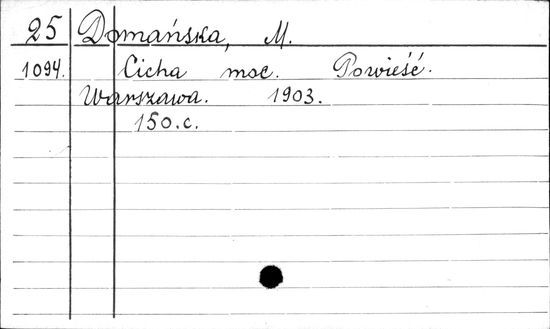 25 Domańska, M.
1094. Cicha moc. Powieść.
Warszawa. 1903.
150.c.